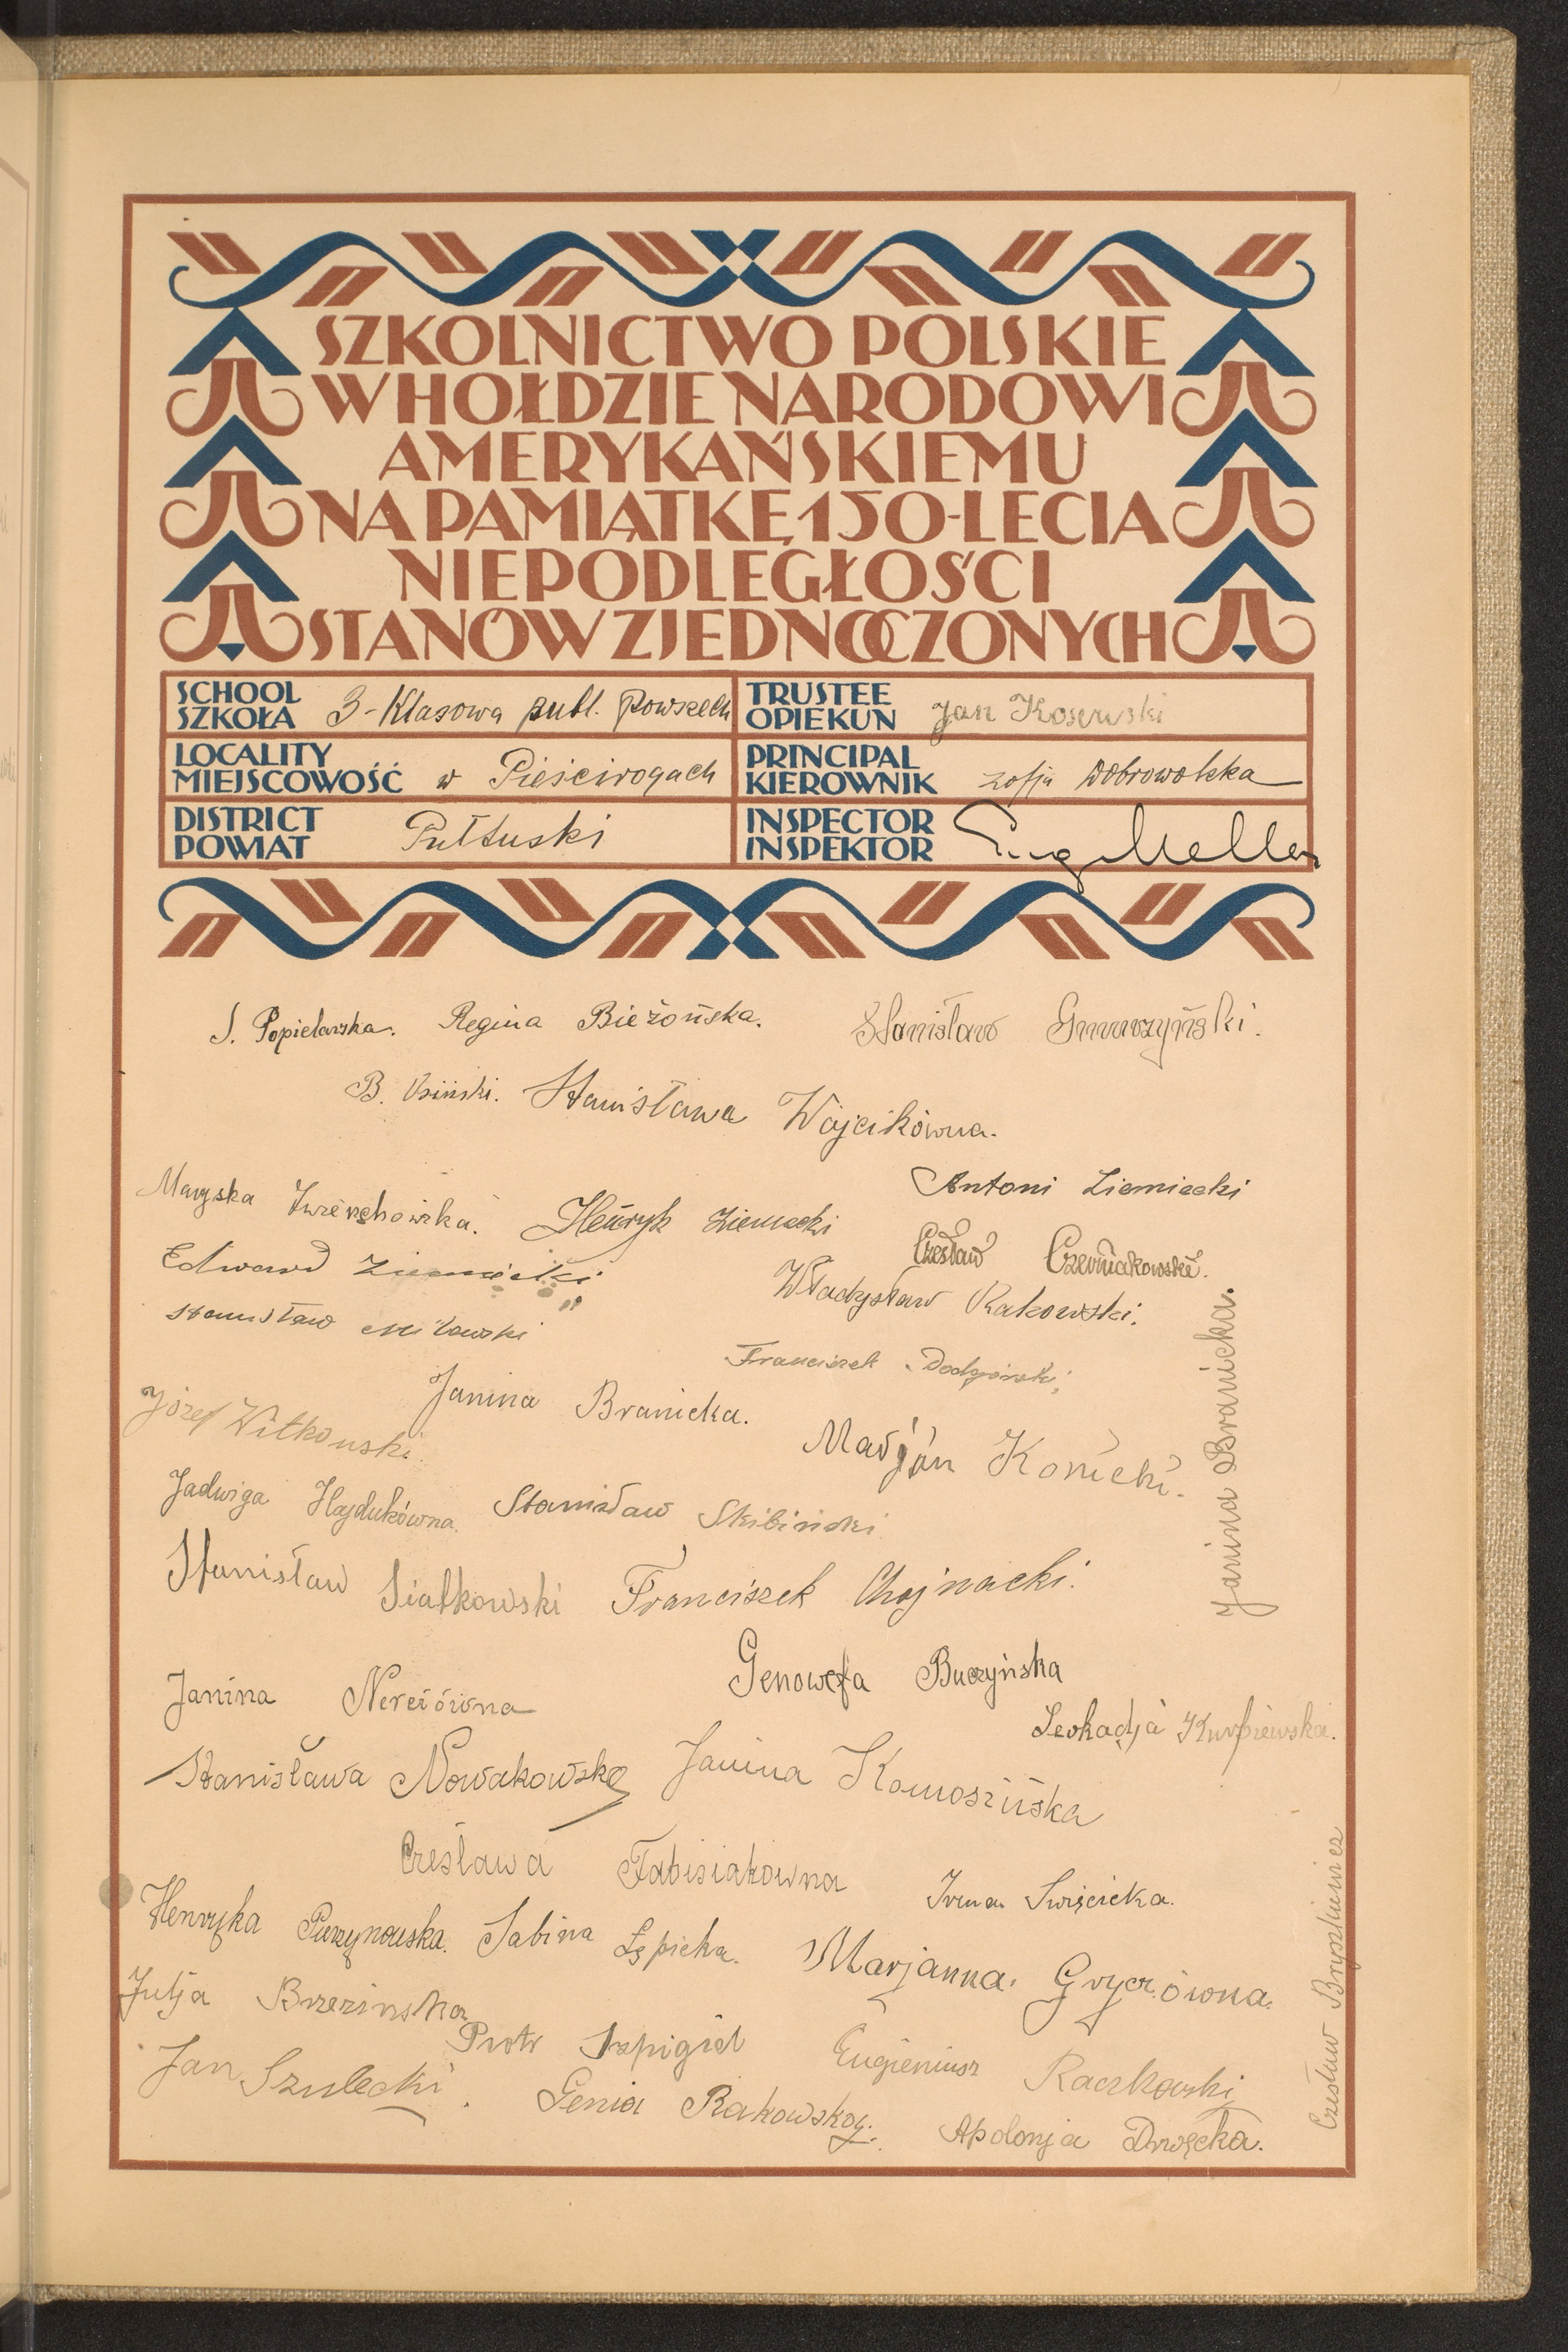 SZKOLNICTWO POLSKIE
W HOŁDZIE NARODOWI
AMERYKAŃSKIEMU
NA PAMIĄTKĘ 150-LECIA
NIEPODLEGŁOŚCI
STANÓW ZJEDNOCZONYCH
SCHOOL SZKOŁA 3-Klasowa publ. Powszech
TRUSTEE OPIEKUN Jan Kosewski
LOCALITY MIEJSCOWOŚĆ w Pieścirogach
PRINCIPAL KIEROWNIK Zofja Dobrowolska
DISTRICT POWIAT Pułtuski
INSPECTOR INSPEKTOR
J. Popielarska. Regina Bieżońska. Stanisław
B. Osiński. Stanisława Wójcikówna.
Antoni Ziemiecki
Maryska Zwierzchowska. Henryk Ziemiecki
Czesław Czerniakowski.
Edward Ziemiecki
Władysław Rakowski.
Stanisław Milewski
Franciszek
Janina Branicka.
Józef Witkowski.
Marjan Konicki.
Janina Branicka.
Jadwiga Hajdukówna. Stanisław Skibiński
Stanisław Siatkowski Franciszek Chojnacki.
Genowefa Buczyńska
Janina
Leokadja Kurpiewska.
Stanisława Nowakowska Janina Komosińska
Czesława Fabisiakówna
Irena Święcicka.
Henryka Purzynowska. Sabina Łępicka.
Marjanna. Gryczówna.
Julja Brzezinska
Piotr Szpigiel Eugieniusz Raczkowski
Jan Szulecki.
Genia Rakowska. Apolonja Drwęcka.
Czesław Bryszkiewicz